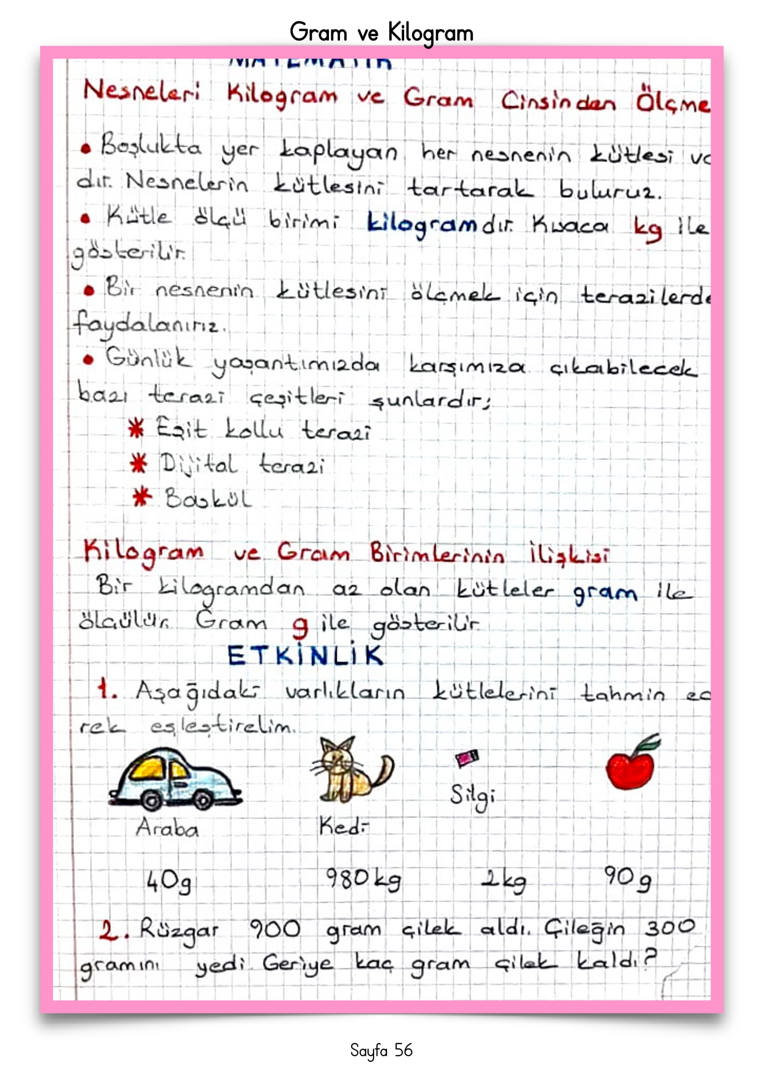 Gram ve Kilogram
MATEMATİK
Nesneleri Kilogram ve Gram Cinsinden Ölçme
• Boşlukta yer kaplayan her nesnenin kütlesi va
dır. Nesnelerin kütlesini tartarak buluruz.
• Kütle ölçü birimi kilogramdır. Kısaca kg ile
gösterilir.
• Bir nesnenin kütlesini ölçmek için terazilerde
faydalanırız.
• Günlük yaşantımızda karşımıza çıkabilecek
bazı terazi çeşitleri şunlardır;
* Eşit kollu terazi
* Dijital terazi
* Baskül
Kilogram ve Gram Birimlerinin İlişkisi
Bir kilogramdan az olan kütleler gram ile
ölçülür. Gram g ile gösterilir.
ETKİNLİK
1. Aşağıdaki varlıkların kütlelerini tahmin ed
rek eşleştirelim.
Araba Kedi Silgi
40g 980 kg 2kg 90 g
2. Rüzgar 900 gram çilek aldı. Çileğin 300
gramını yedi. Geriye kaç gram çilek kaldı?
Sayfa 56